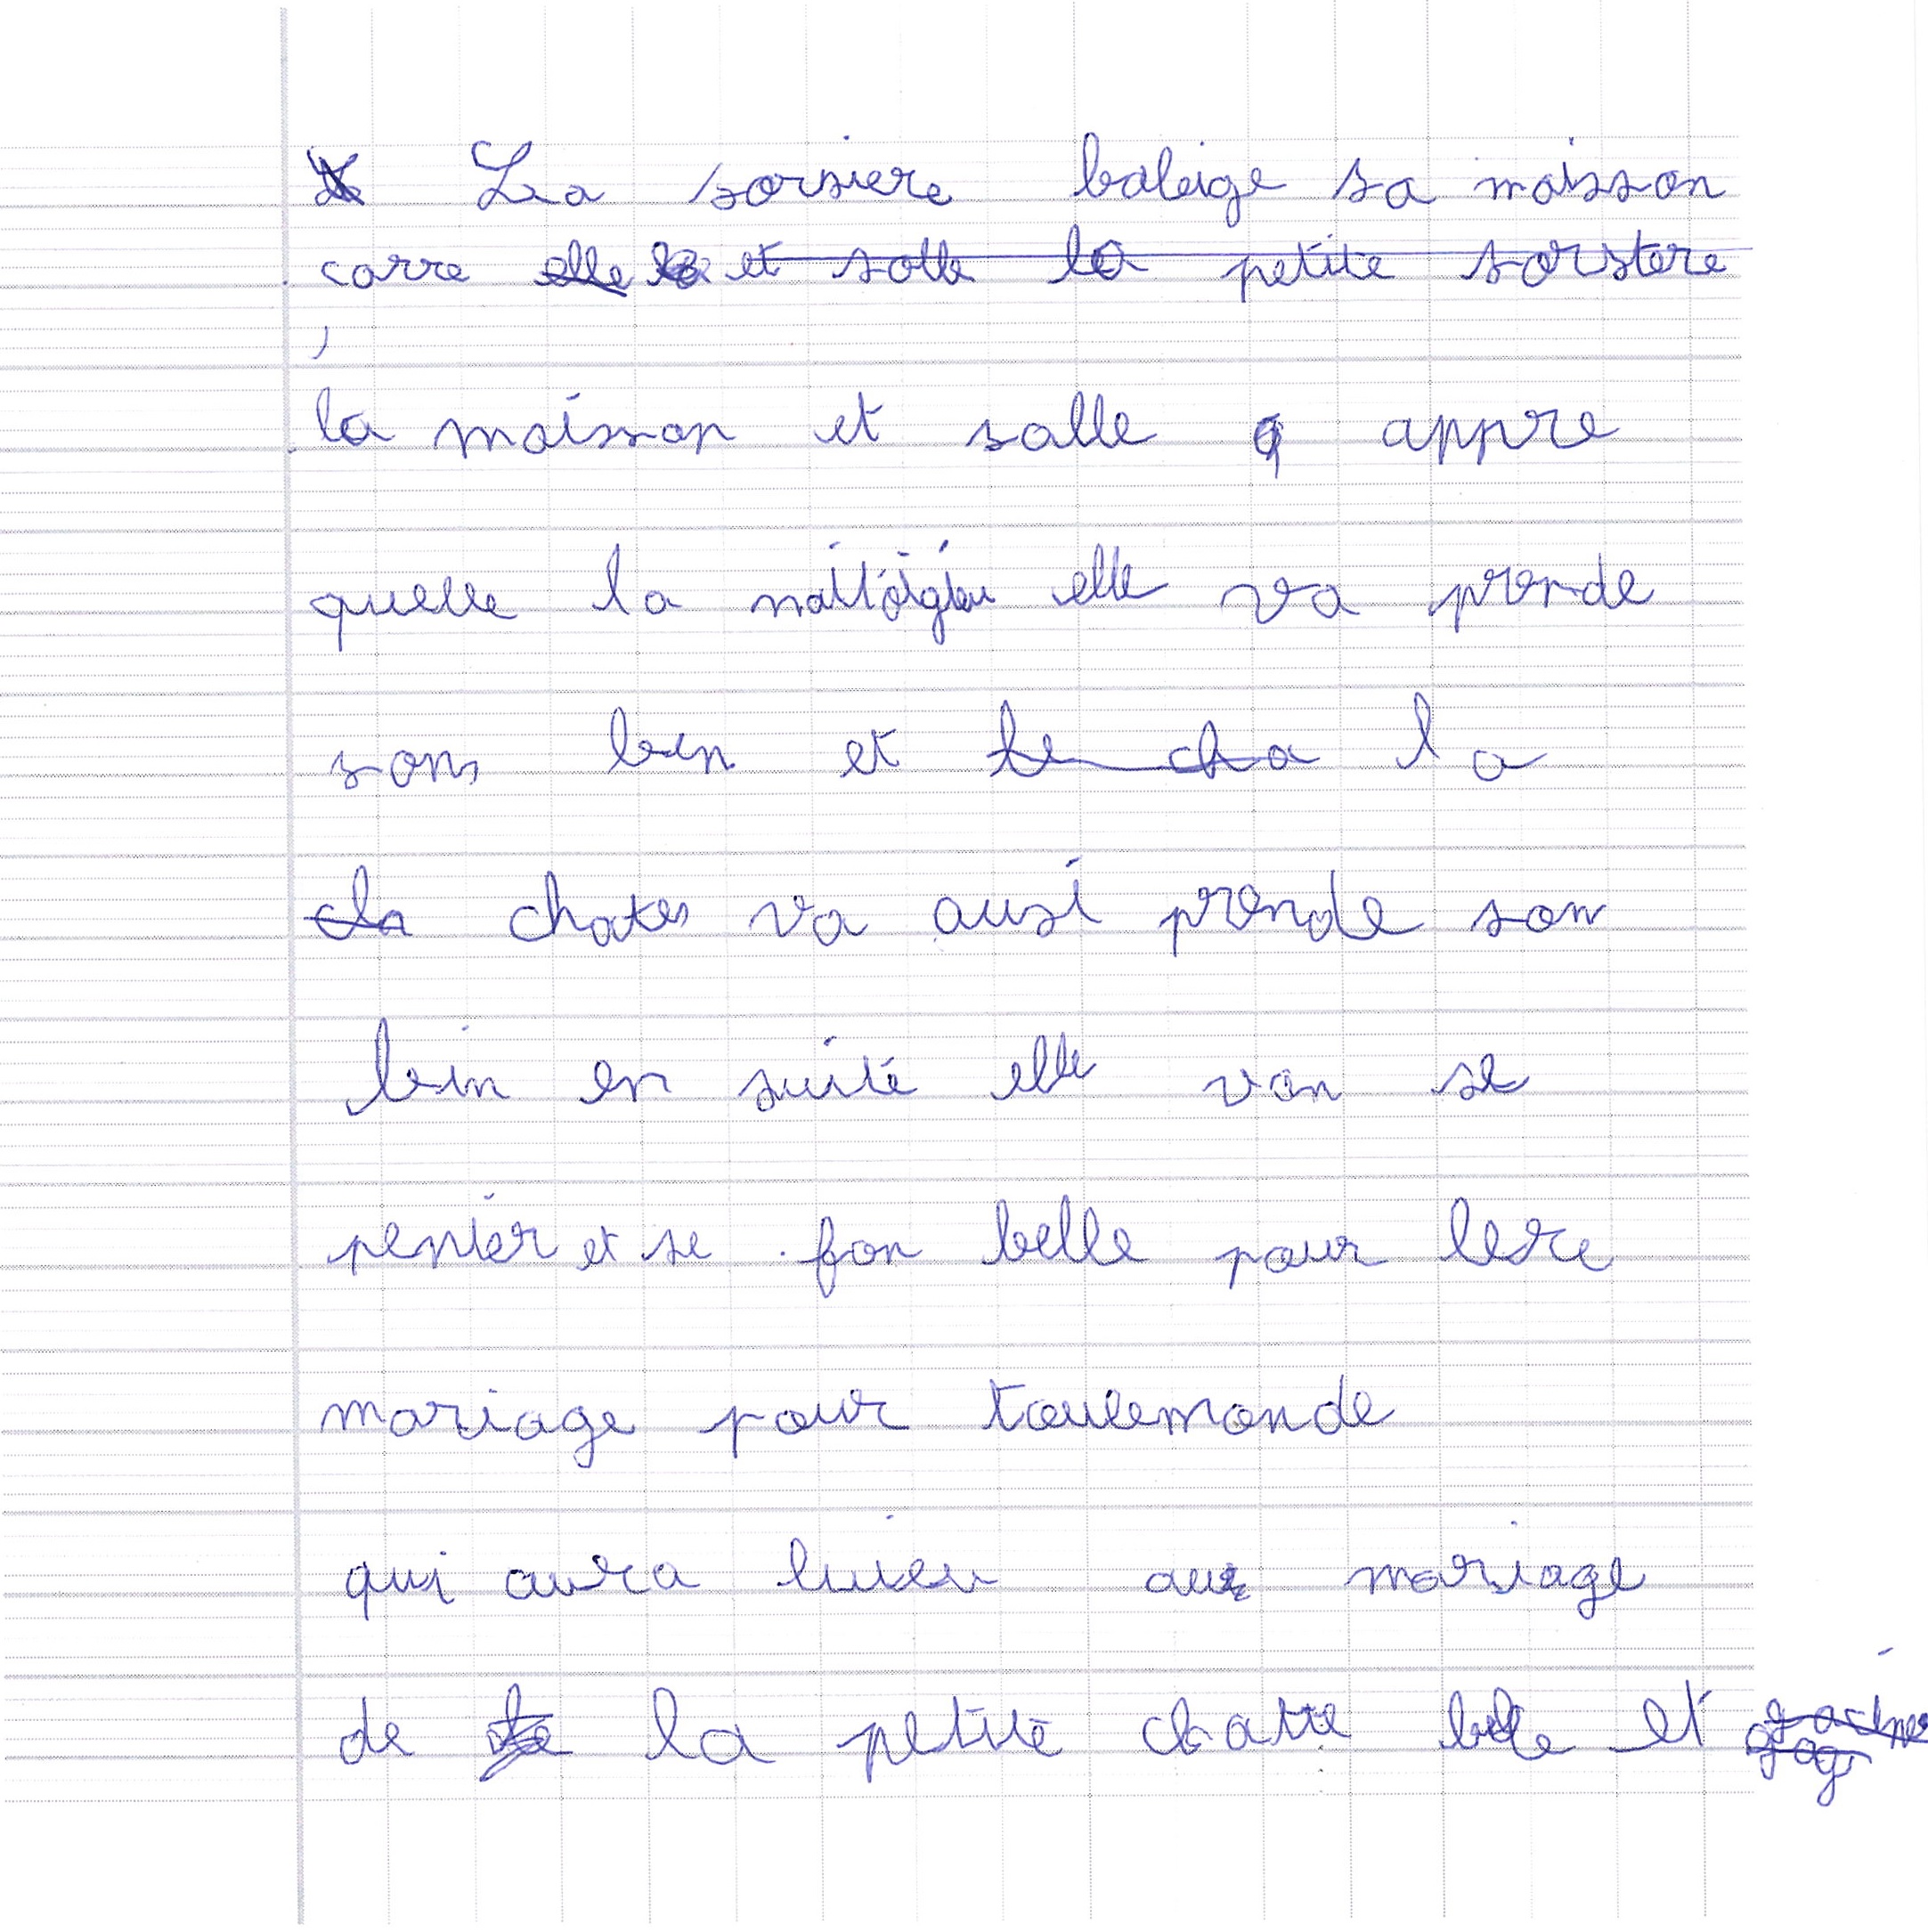 La sorsiere baleige sa maison
carre elle et salle la petite sorsiere
la maison et salle appre
quelle la elle va prende
sons bein et le cha la
cha chates va ausi prende son
bein en suite elle von se
penier et se fon belle pour lere
mariage pour toulemonde
qui aura luieu au mariage
de la petite chatte bele et